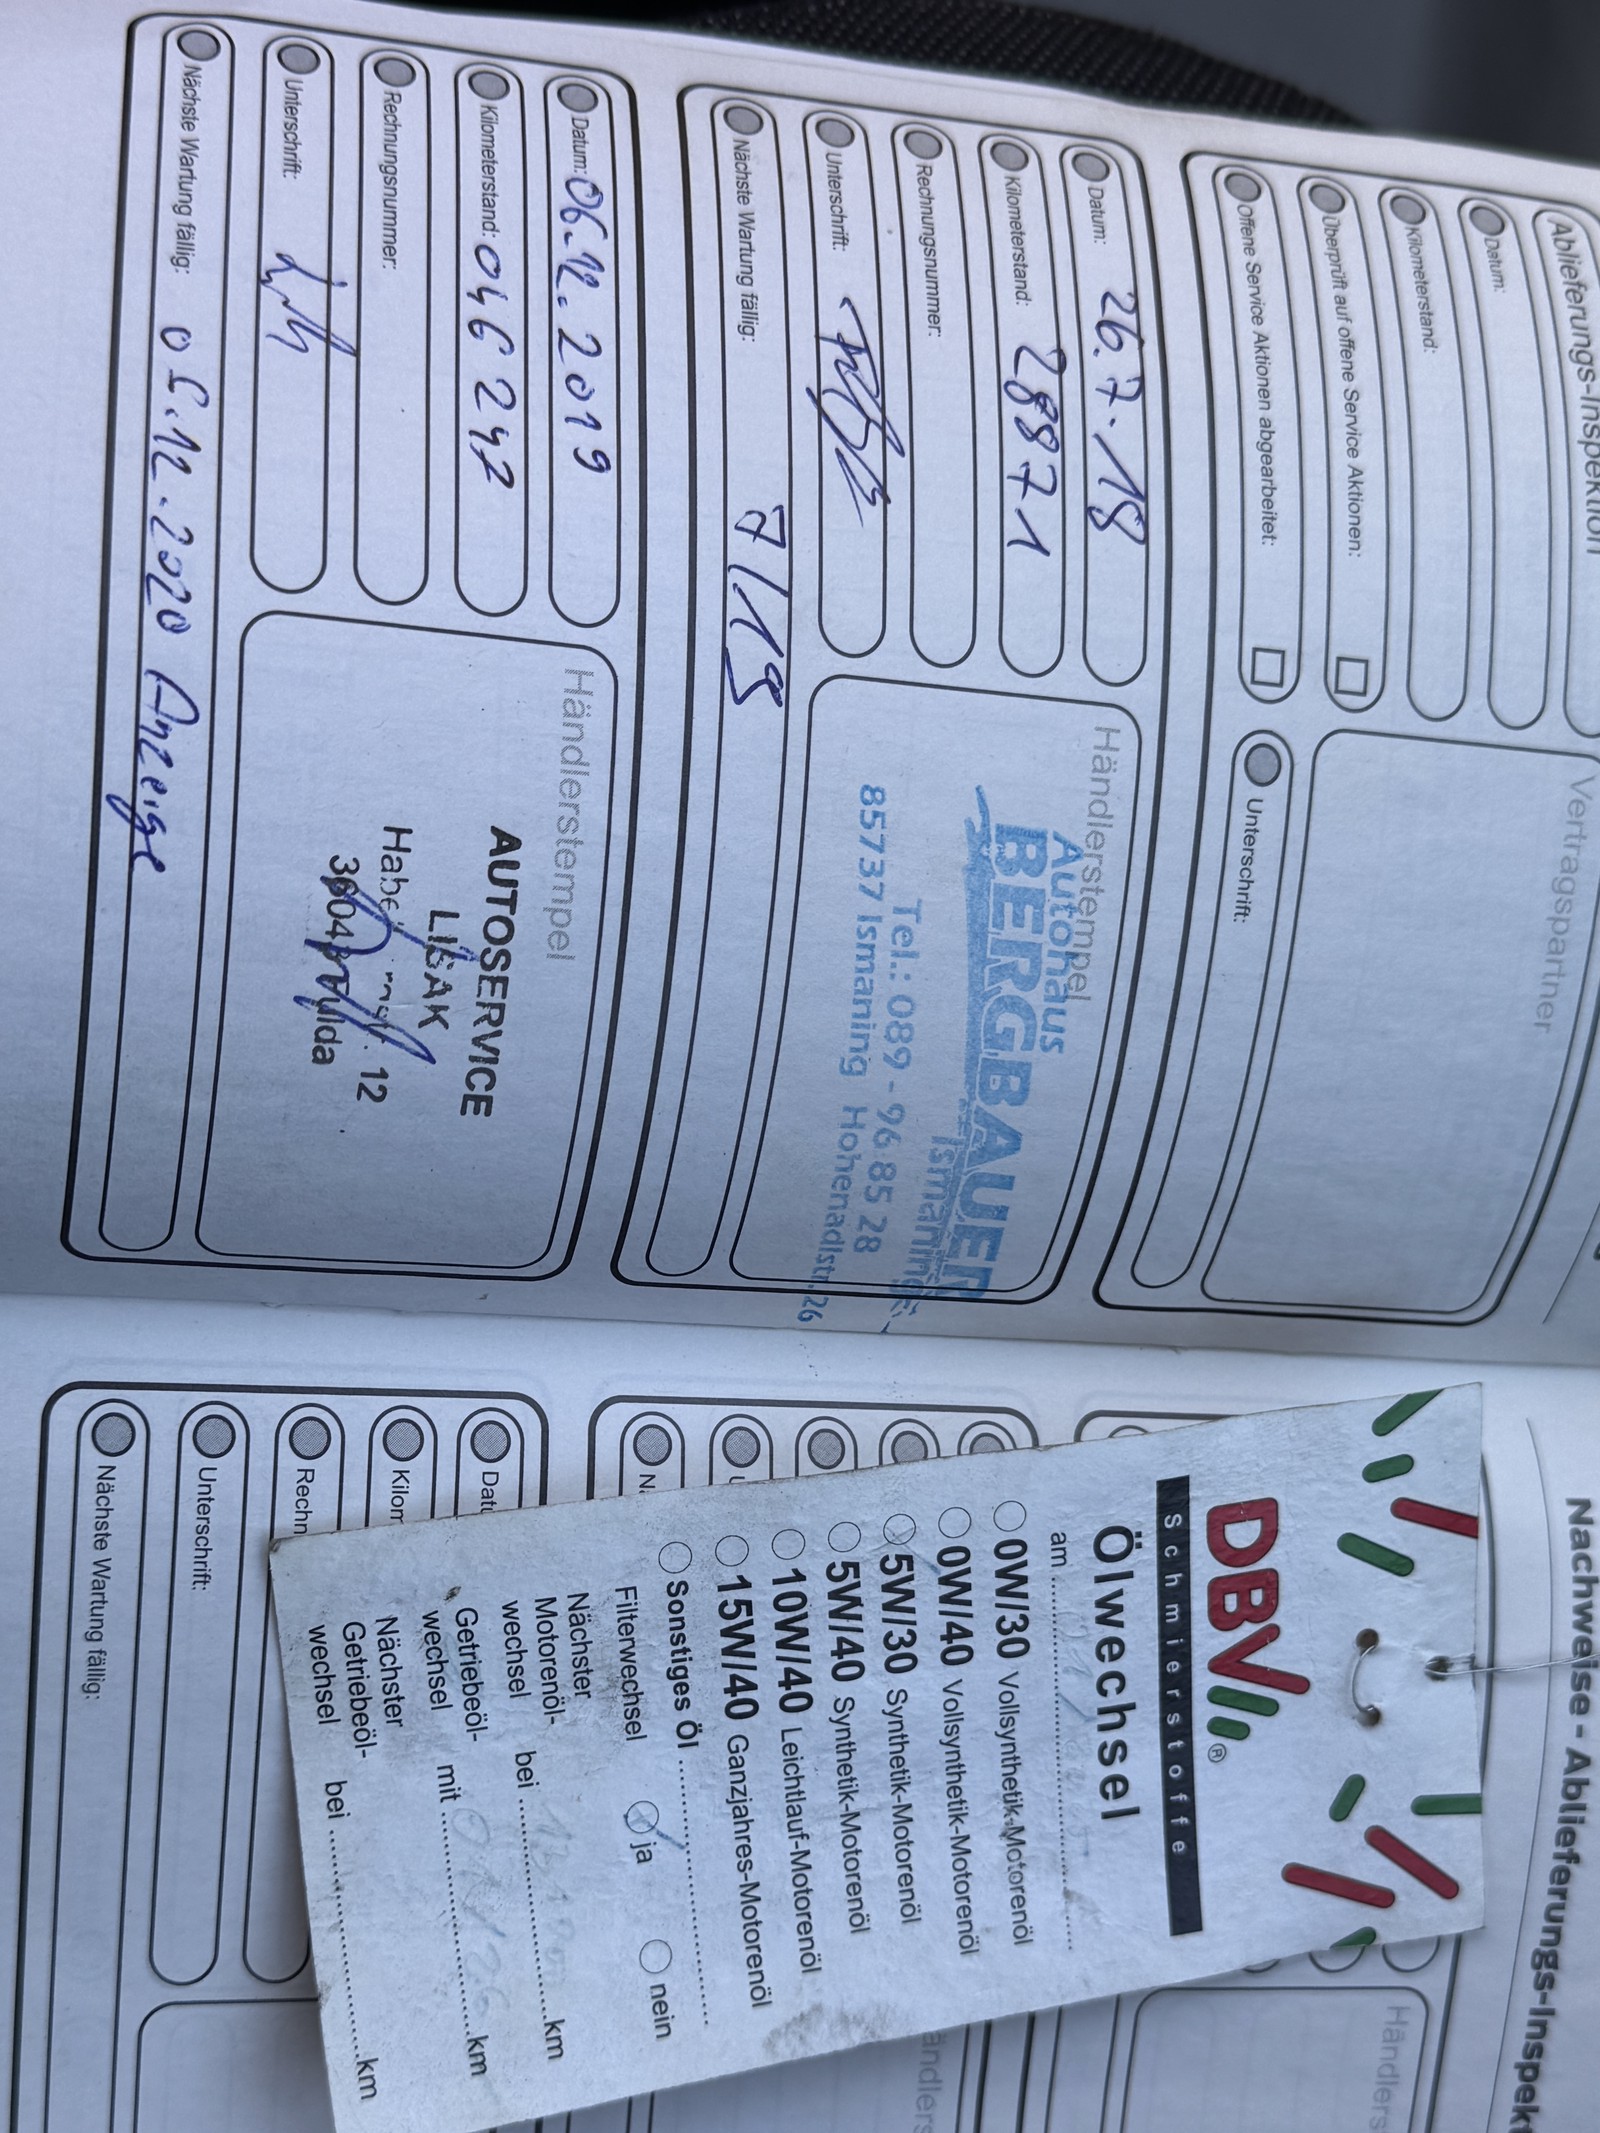 Ablieferungs-Inspektion
Vertragspartner
Datum:
Kilometerstand:
Überprüft auf offene Service Aktionen:
offene Service Aktionen abgearbeitet:
Unterschrift:
Datum: 26.7.18
Kilometerstand: 28871
Rechnungsnummer:
Unterschrift:
Nächste Wartung fällig: 7/19
Händlerstempel
Autohaus
BERGBAUER
Ismaning
Tel.: 089 - 96 85 28
85737 Ismaning Hohenadlstr. 26
Datum: 06.12.2019
Kilometerstand: 046247
Rechnungsnummer:
Unterschrift:
Nächste Wartung fällig: 06.12.2020 Anzeige
Händlerstempel
AUTOSERVICE
LIBAK
12
Fulda
Nachweise - Ablieferungs-Inspekt
Händlers
ändlers
Dat
Kilom
Rechn
Unterschrift:
Nächste Wartung fällig:
DBV®
Schmierstoffe
Ölwechsel
am
0W/30 Vollsynthetik-Motorenöl
0W/40 Vollsynthetik-Motorenöl
5W/30 Synthetik-Motorenöl
5W/40 Synthetik-Motorenöl
10W/40 Leichtlauf-Motorenöl
15W/40 Ganzjahres-Motorenöl
Sonstiges Öl
Filterwechsel ja nein
Nächster
Motorenöl-
wechsel bei km
Getriebeöl-
wechsel mit km
Nächster
Getriebeöl-
wechsel bei km